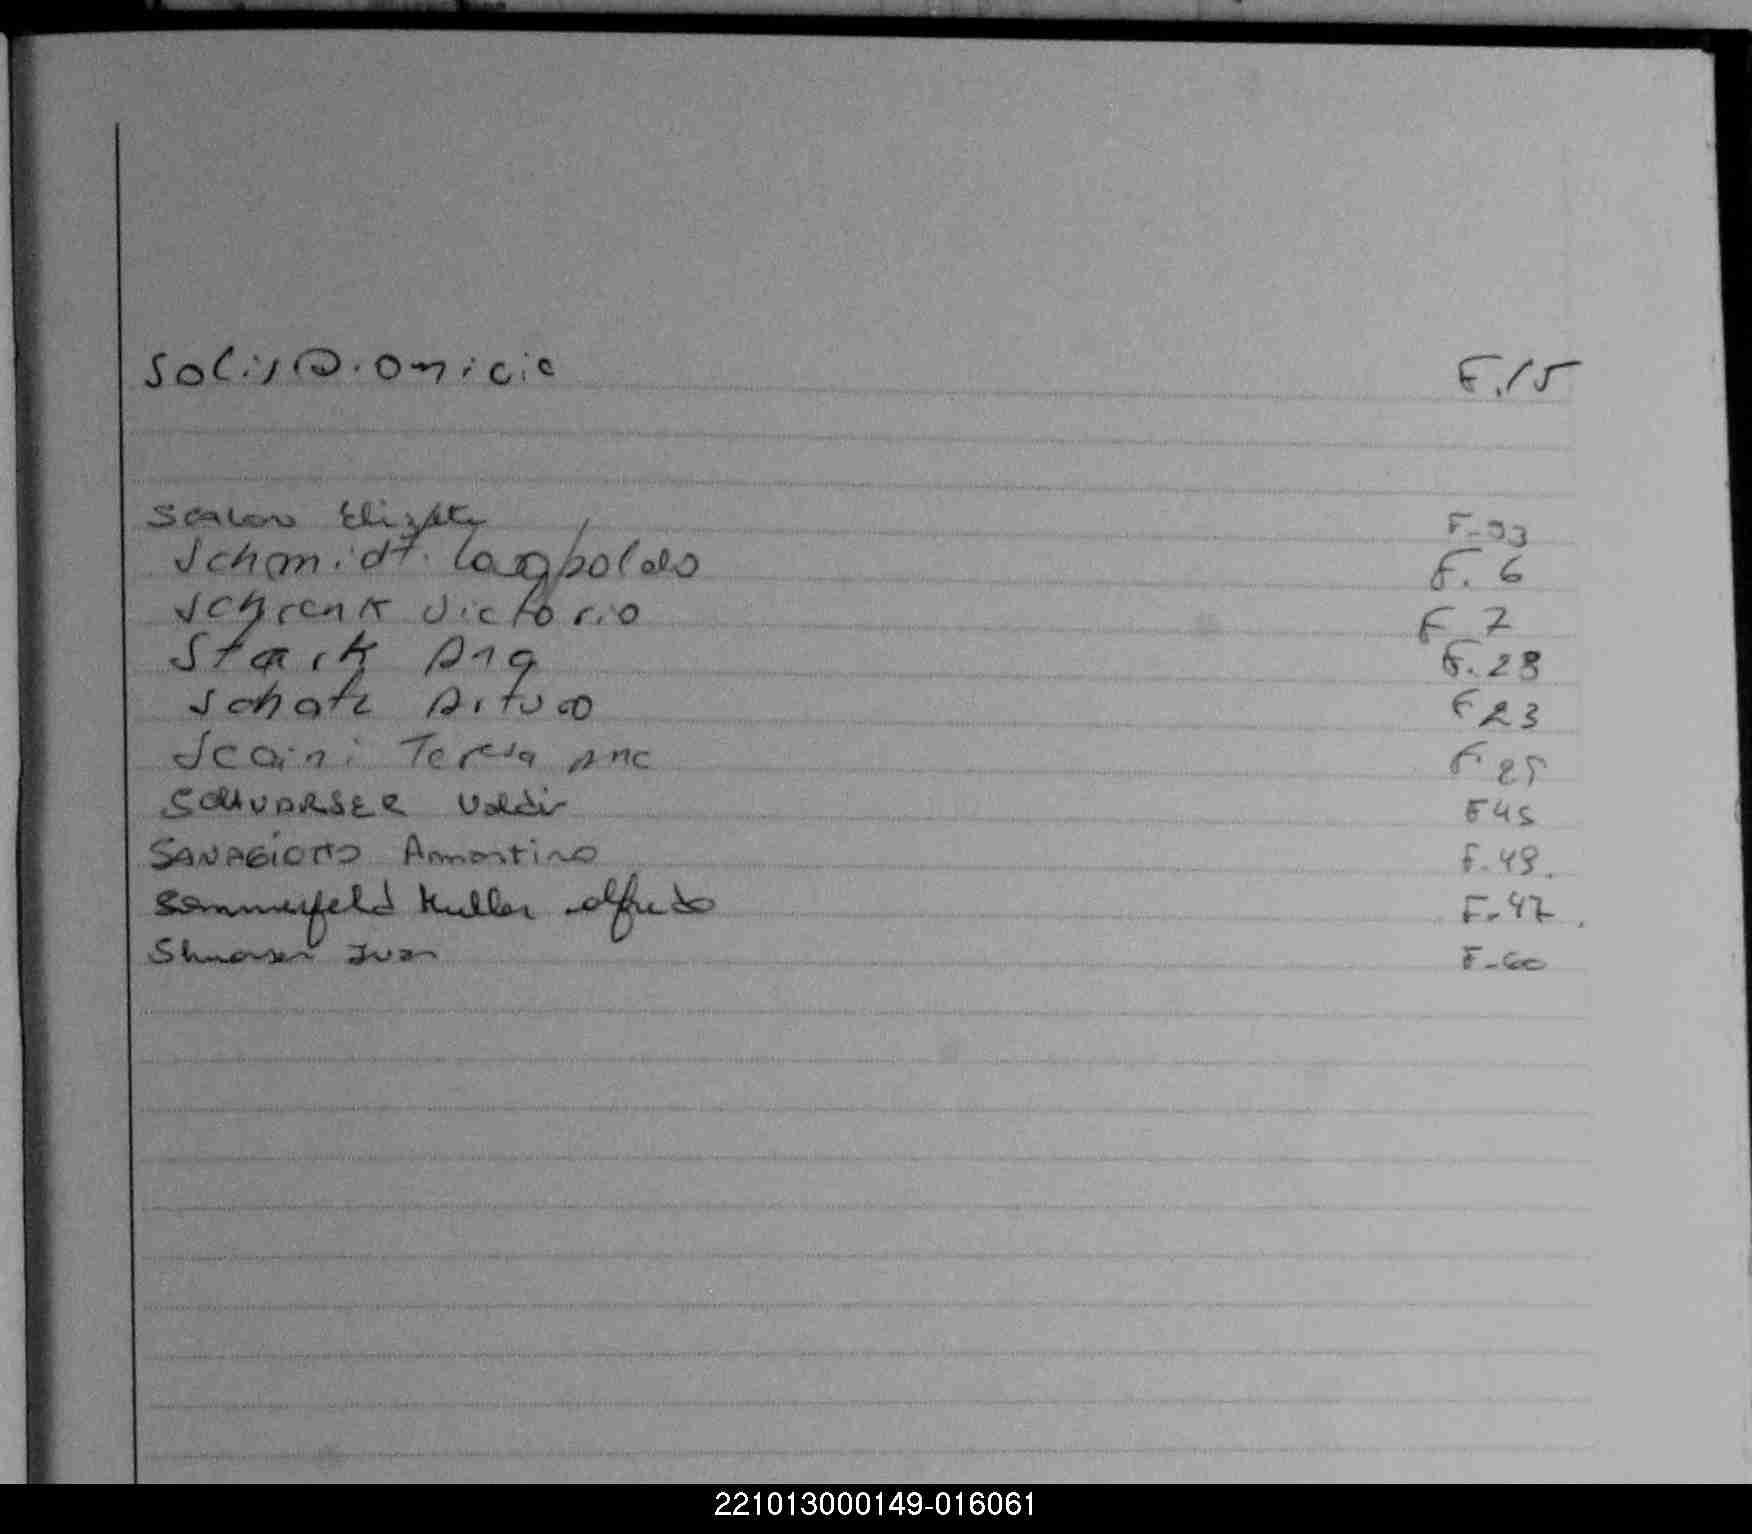 Solis Dionicio F.15
Scalon F-33
Schmidt. F. 6
Schrenk Victorio F 7
Stark Ana F. 28
Schatz Arturo F 23
Scaini Teresa Ana F. 25
SCHVARSER Valdir F 45
SANAGIOTTO Armantino F. 49.
Sommerfeld Muller Alfredo F. 47.
Ivan F-60
221013000149-016061